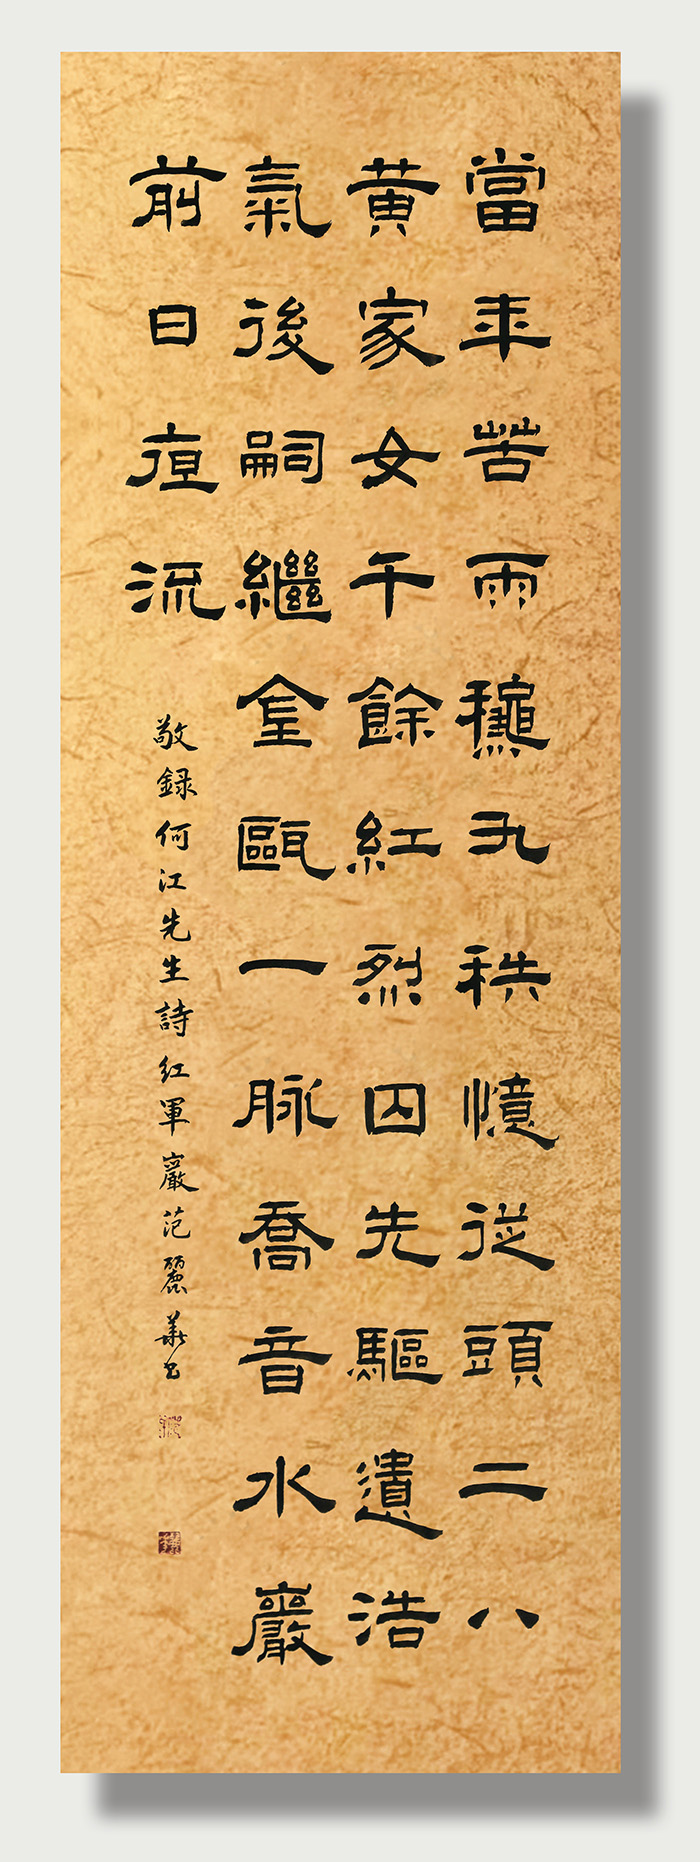 當年苦雨龝九秩憶從頭二八
黃家女千餘紅烈囚先驅遺浩
氣後嗣繼金甌一脉喬音水巖
前日亱流
敬録何江先生詩紅軍巖范麗華書